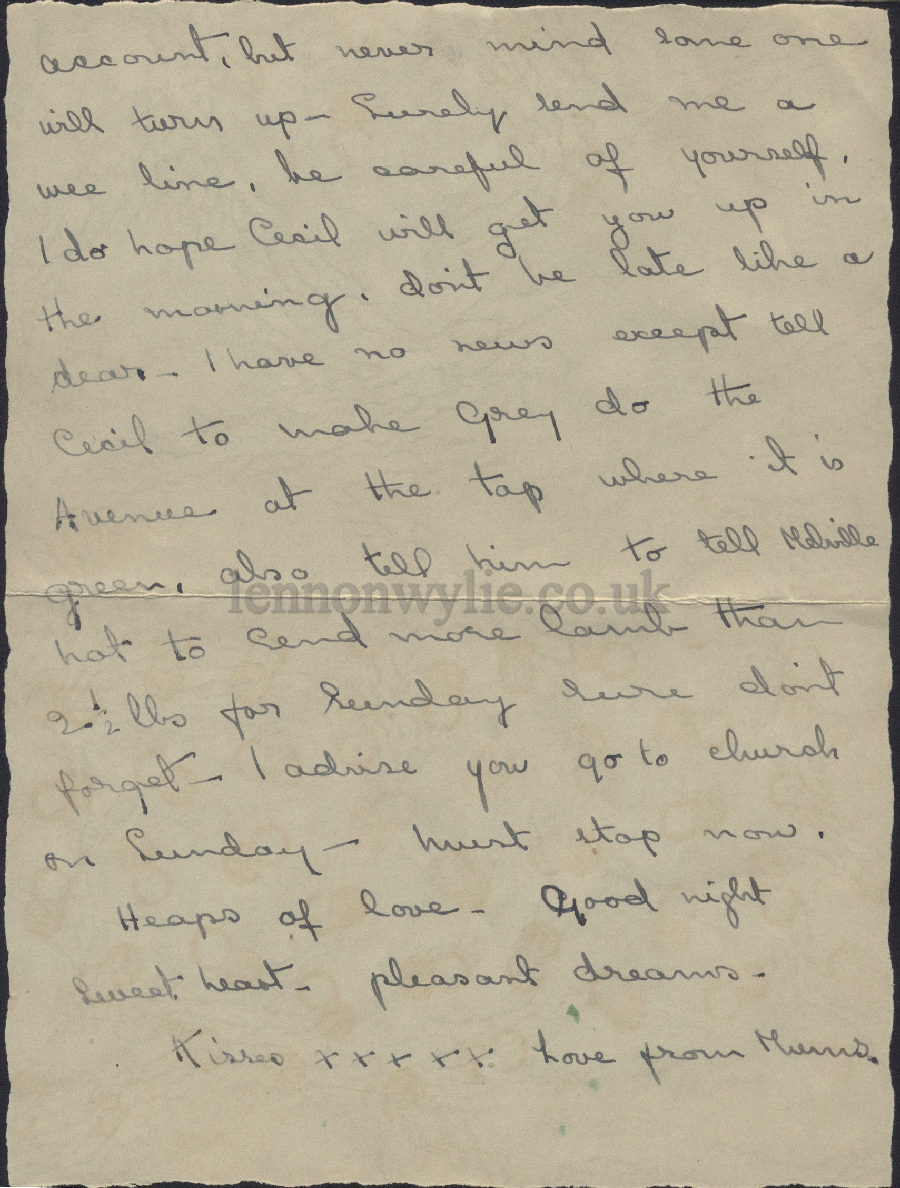 account, but never mind some one
will turn up – Surely send me a
wee line, be careful of yourself,
I do hope Cecil will get you up in
the morning, don't be late like a
dear – I have no news except tell
Cecil to make Grey do the
Avenue at the tap where it is
green, also tell him to tell Melville
lennonwylie.co.uk
not to send more lamb than
2 1/2 lbs for Sunday sure don't
forget – I advise you go to church
on Sunday – Must stop now.
Heaps of love – Good night
Sweet heart – pleasant dreams –
Kisses x x x x x Love from Mums.